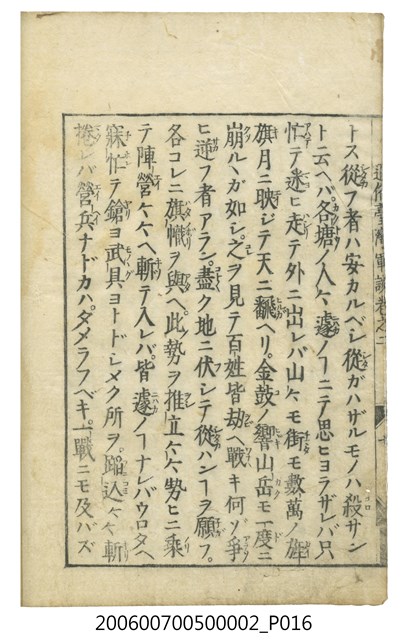 通俗臺灣軍談卷之二
トス從フ者ハ安カルベシ從ガハザルモノハ殺サン
ト云ヘバ各塘ノ人々遽ノヿニテ思ヒヨラザレバ只
忙テ迷ヒ走テ外ニ出レバ山々モ街モ數萬ノ旌
旗月ニ映ジテ天ニ飜ヘリ金鼓ノ響山岳モ一度ニ
崩ルヽガ如シ之ヲ見テ百姓皆劫ヘ戰キ何ソ爭
ヒ逆フ者アラン盡ク地ニ伏シテ從ハンヿヲ願フ
各コレニ旗幟ヲ與ヘ此勢ヲ推立々々勢ヒニ乘
テ陣營々々ヘ斬テ入レバ皆遽ノヿナレバウロタヘ
寐忙テ鎗ヨ武具ヨトドシメク所ヲ蹈込々々斬
捲レバ營兵ナドカハタメラフベキ一戰ニモ及バズ
200600700500002_P016